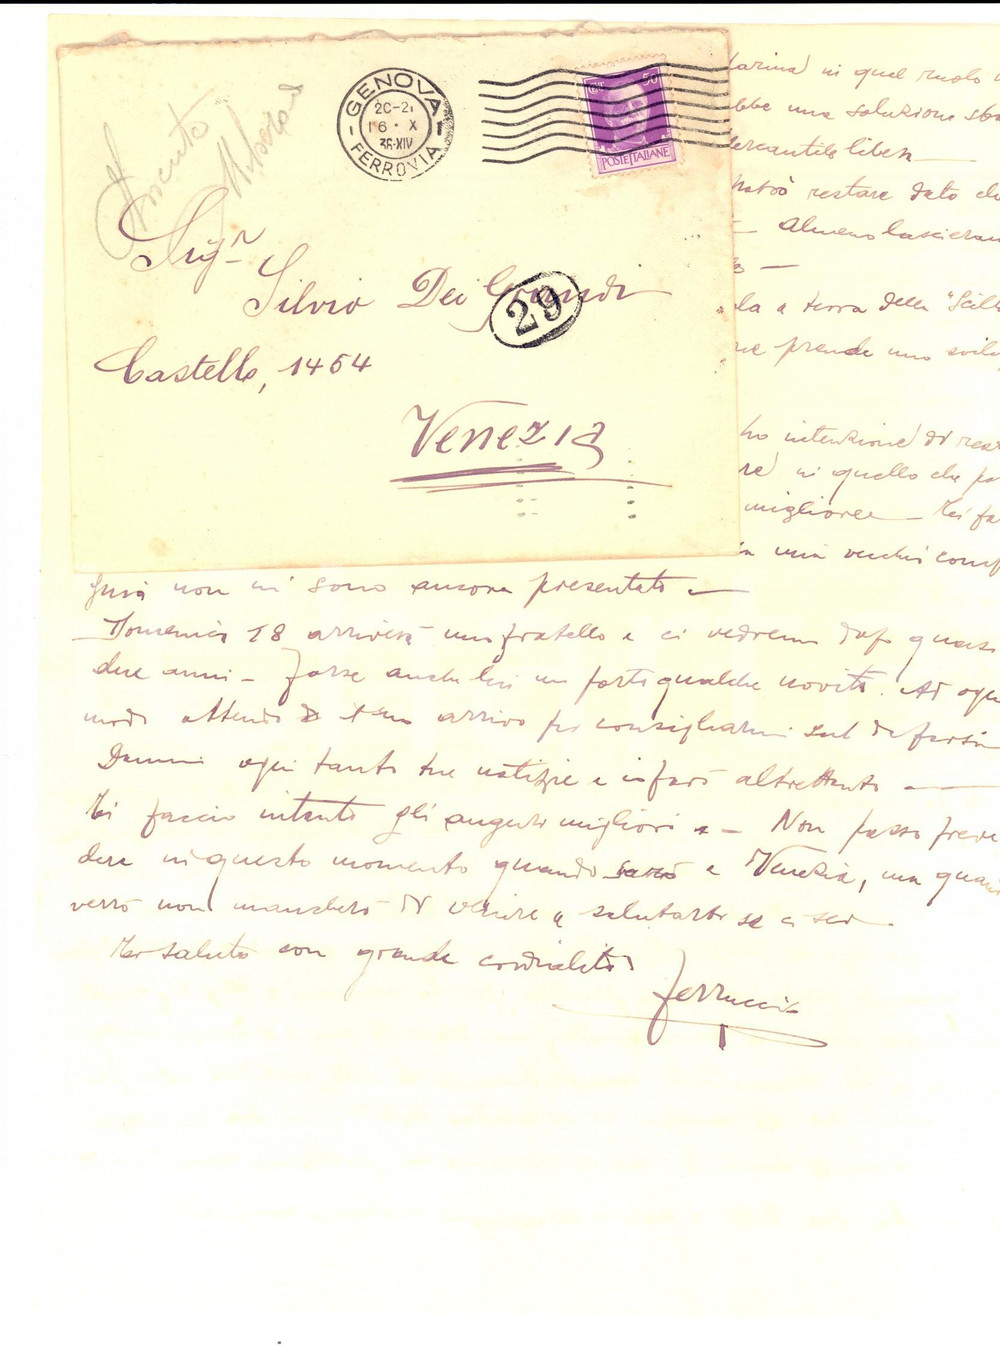 GENOVA
20-21
16·X
36·XIV
FERROVIA
CENT. 50
POSTE ITALIANE
Sig.r
Silvio De Grandi
29
Castello, 1454
Venezia
marina in quel ruolo
ebbe una soluzione
mercantile libera
potrò restare dato che
Almeno lascieran
a terra della "Scilla
prende uno svilu
ho intenzione di rest
in quello che
migliore — Ti fa
mia vecchia comp
non mi sono ancora presentato —
Domenica 18 arriverà mio fratello e ci vedremo dopo quasi
due anni — Forse anche lui mi porti qualche novità. Ad ogni
modo attendo il suo arrivo per consigliarmi sul da farsi
Dammi ogni tanto tue notizie e io farò altrettanto —
Ti faccio intanto gli auguri migliori — Non posso preve
dere in questo momento quando sarò a Venezia, ma quando
verrò non mancherò di venire a salutarti se ci sei.
Ti saluto con grande cordialità
Ferruccio